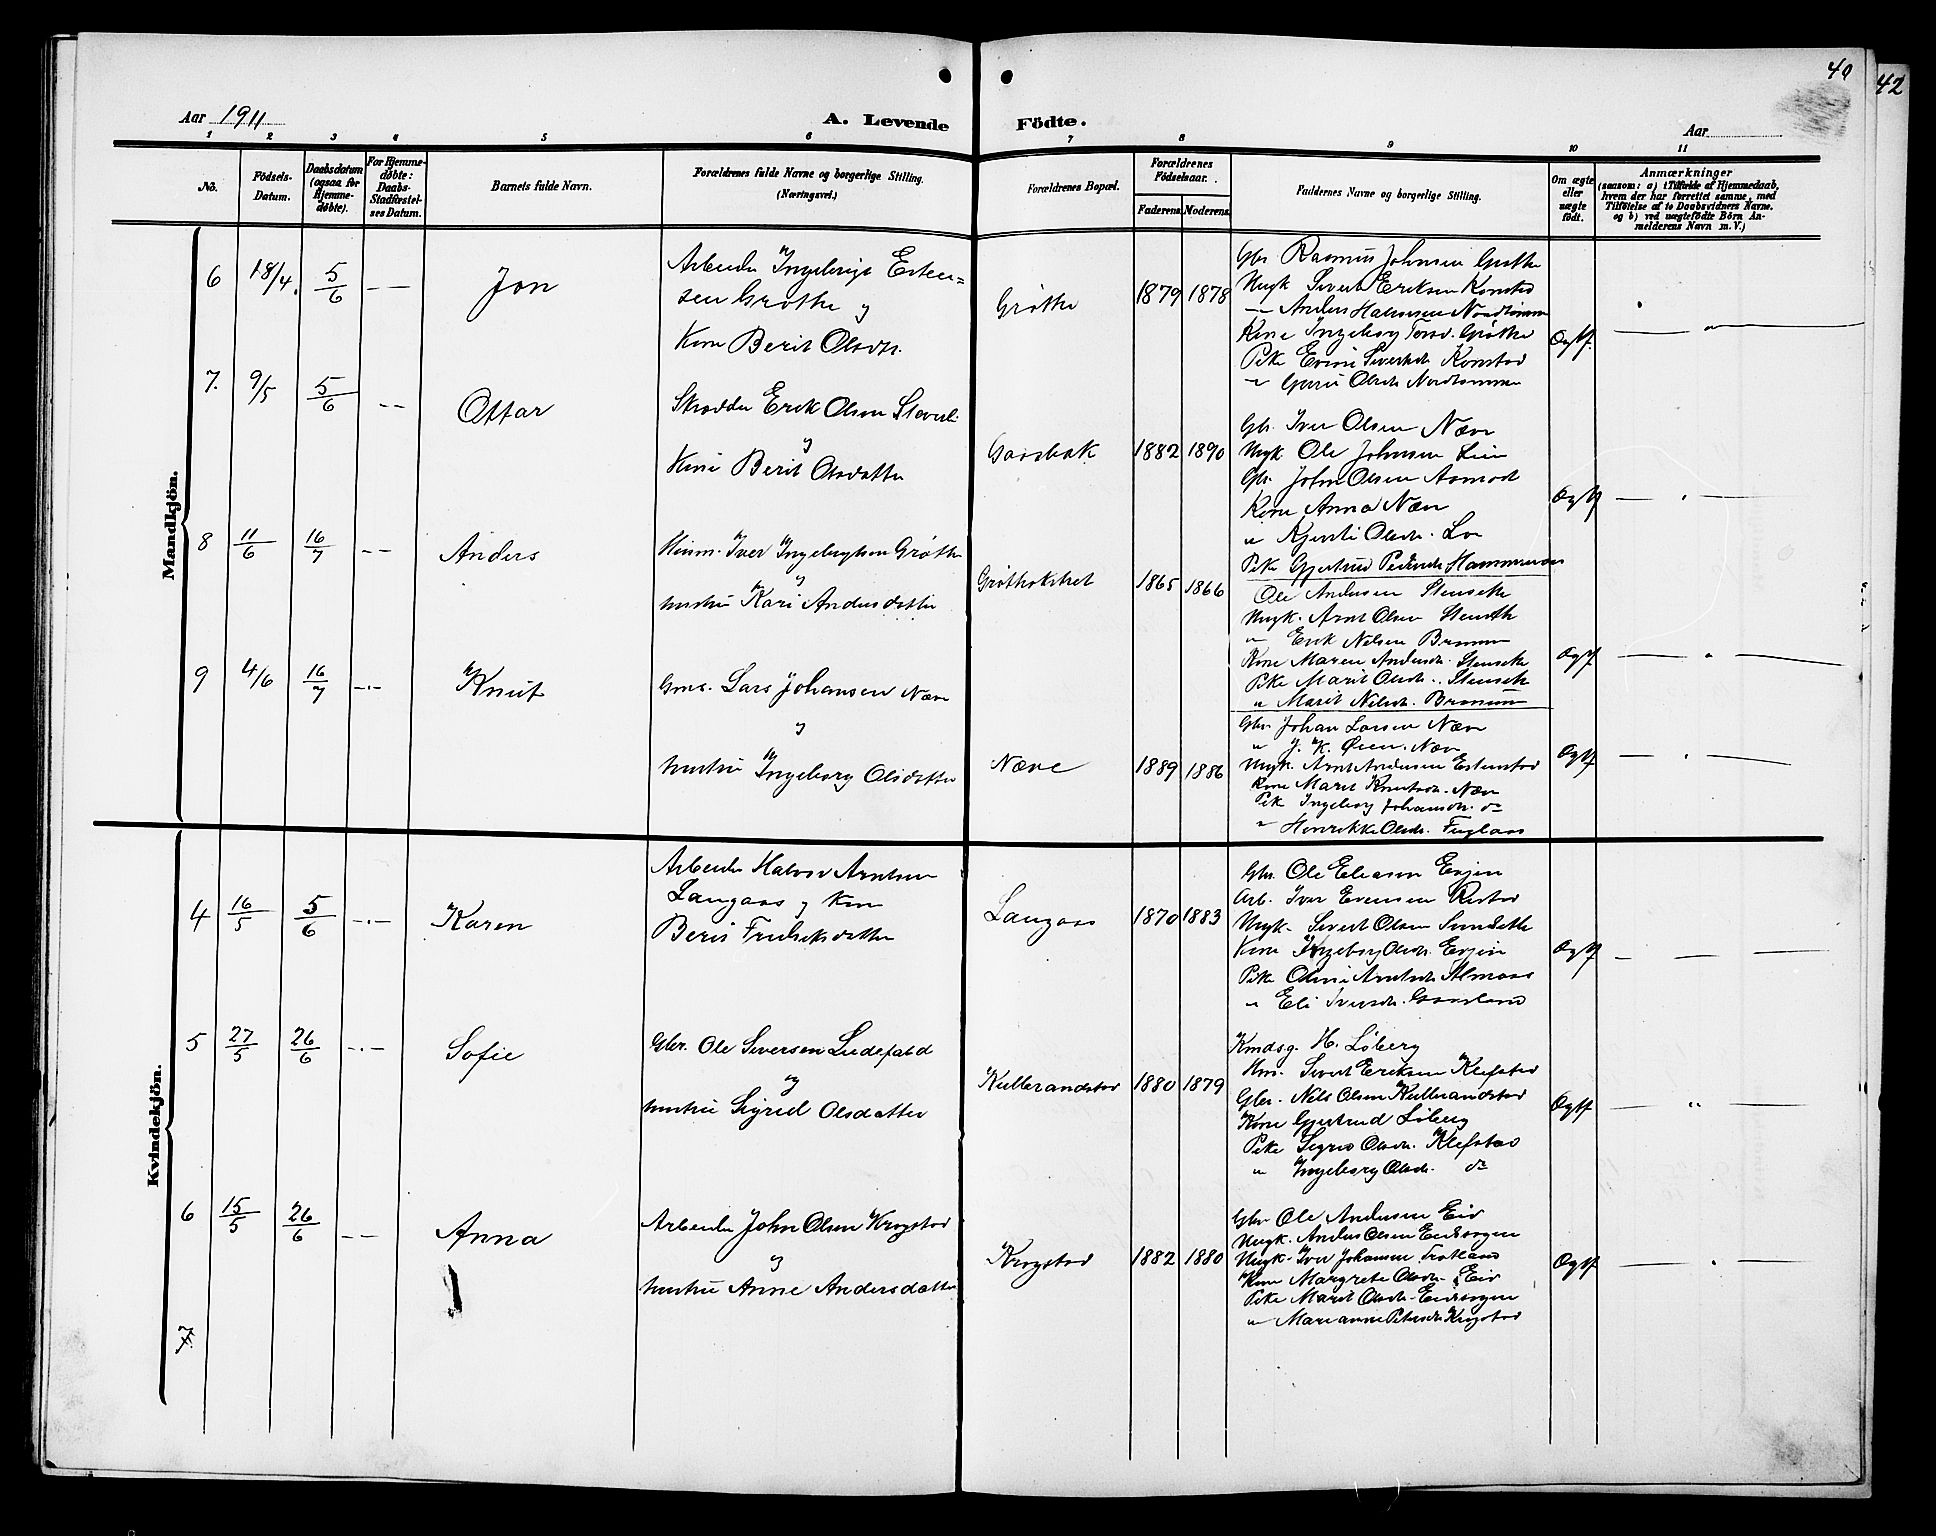 40
42
Aar 1911
A. Levende Födte.
Aar
1 2 3 4 5 6 7 8 9 10 11
No.
Födsels-Datum.
Daabsdatum (ogsaa for Hjemme-døbte).
For Hjemme-døbte: Daabs-Stadfæstel-ses Datum.
Barnets fulde Navn.
Forældrenes fulde Navne og borgerlige Stilling.
(Næringsvei.)
Forældrenes Bopæl.
Forældrenes Fødselsaar.
Faderens Moderens
Faddernes Navne og borgerlige Stilling.
Om ægte eller uægte födt.
Anmærkninger
(saasom: a) i Tilfælde af Hjemmedaab,
hvem der har forrettet samme, med
Tilföielse af to Daabsvidners Navne.
og b) ved uægtefödte Börn An-
melderens Navn m. V.)
Mandkjön.
6 18/4 5/6 — — Jon
Arbeider Ingebrigt Esten=
sen Grøthe og
Kone Berit Olsdtr.
Grøthe 1879 1878
Gbr. Rasmus Johnsen Grøthe
Ungk Sivert Eriksen Konstad
— Anders Halvorsen Nordtømme
Kone Ingeborg Grøthe
Pike Siverts. Konstad
" Guru Olsdr. Nordtømme
Ægtf.
7. 9/5 5/6 — — Ottar
Skrædder Erik Olsen
og
Kone Berit Olsdatter
1882 1890
Gbr. Iver Olsen Næve
Ungk. Ole Johnsen Lien
Gbr. John Olsen Aamodt
Kone Anna Næve
" Kjersti Olsdr. Loe
Pike Gjertrud Pedersdr Hammeraas
Ægtf
8 11/6 16/7 — — Anders
Iver Ingebrigtsen Grøthe
og
hustru Kari Andersdatter
1865 1866
Ole Andersen Stensethe
Ungk. Arnt Olsen Stensethe
" Erik Nilsen Bramem
Kone Maren Andersdr. Stensethe
Pike Marit Olsdr. Stensethe
" Marit Nilsdr.
Ægtf
9 4/6 16/7 — — Knut
Gms. Lars Johansen Næve
og
hustru Ingeborg Olsdatter
Næve 1889 1886
Gbr Johan Larsen Næve
" J. K. Øien. Næve
Ungk. Arnt Andersen Estenstad
Kone Marit Knutsdr. Næve
Pike Ingeborg Johansdr. do
" Henrikke Olsdr. Fuglaas
Ægtf
Kvindekjön.
4 16/5 5/6 — — Karen
Arbeider Halvor Arntsen
Langaas og Kone
Berit Fredriksdatter
Langaas 1870 1883
Gbr. Ole Eliasen Evjen
Arb. Iver Evensen Ristad
Ungk. Sivert Olsen
Kone Ingeborg Olsdr. Evjen
Pike Oline Arntsdr. Almaas
" Eli Iversdr.
Ægtf
5 27/5 26/6 — — Sofie
Gbr. Ole Siversen Lidefald
og
hustru Sigrid Olsdatter
Kulbrandstad 1880 1879
Kmdsg. H. Løberg
Sivert Eriksen Klefstad
Gbr. Nils Olsen Kulbrandstad
Kone Gjertrud Løberg
Pike Sigrid Olsdr. Klefstad
" Ingeborg Olsdr. do
Ægtf
6 15/5 26/6 — — Anna
Arbeider John Olsen Krogstad
og
hustru Anne Andersdatter
Krogstad 1882 1880
Gbr Ole Andersen Eid
Ungk. Anders Olsen
Ungk. Iver Johansen
Kone Margrete Olsdr. Eid
Pike Marit Olsdr.
" Marianne Petersdr Krogstad
Ægtf
7